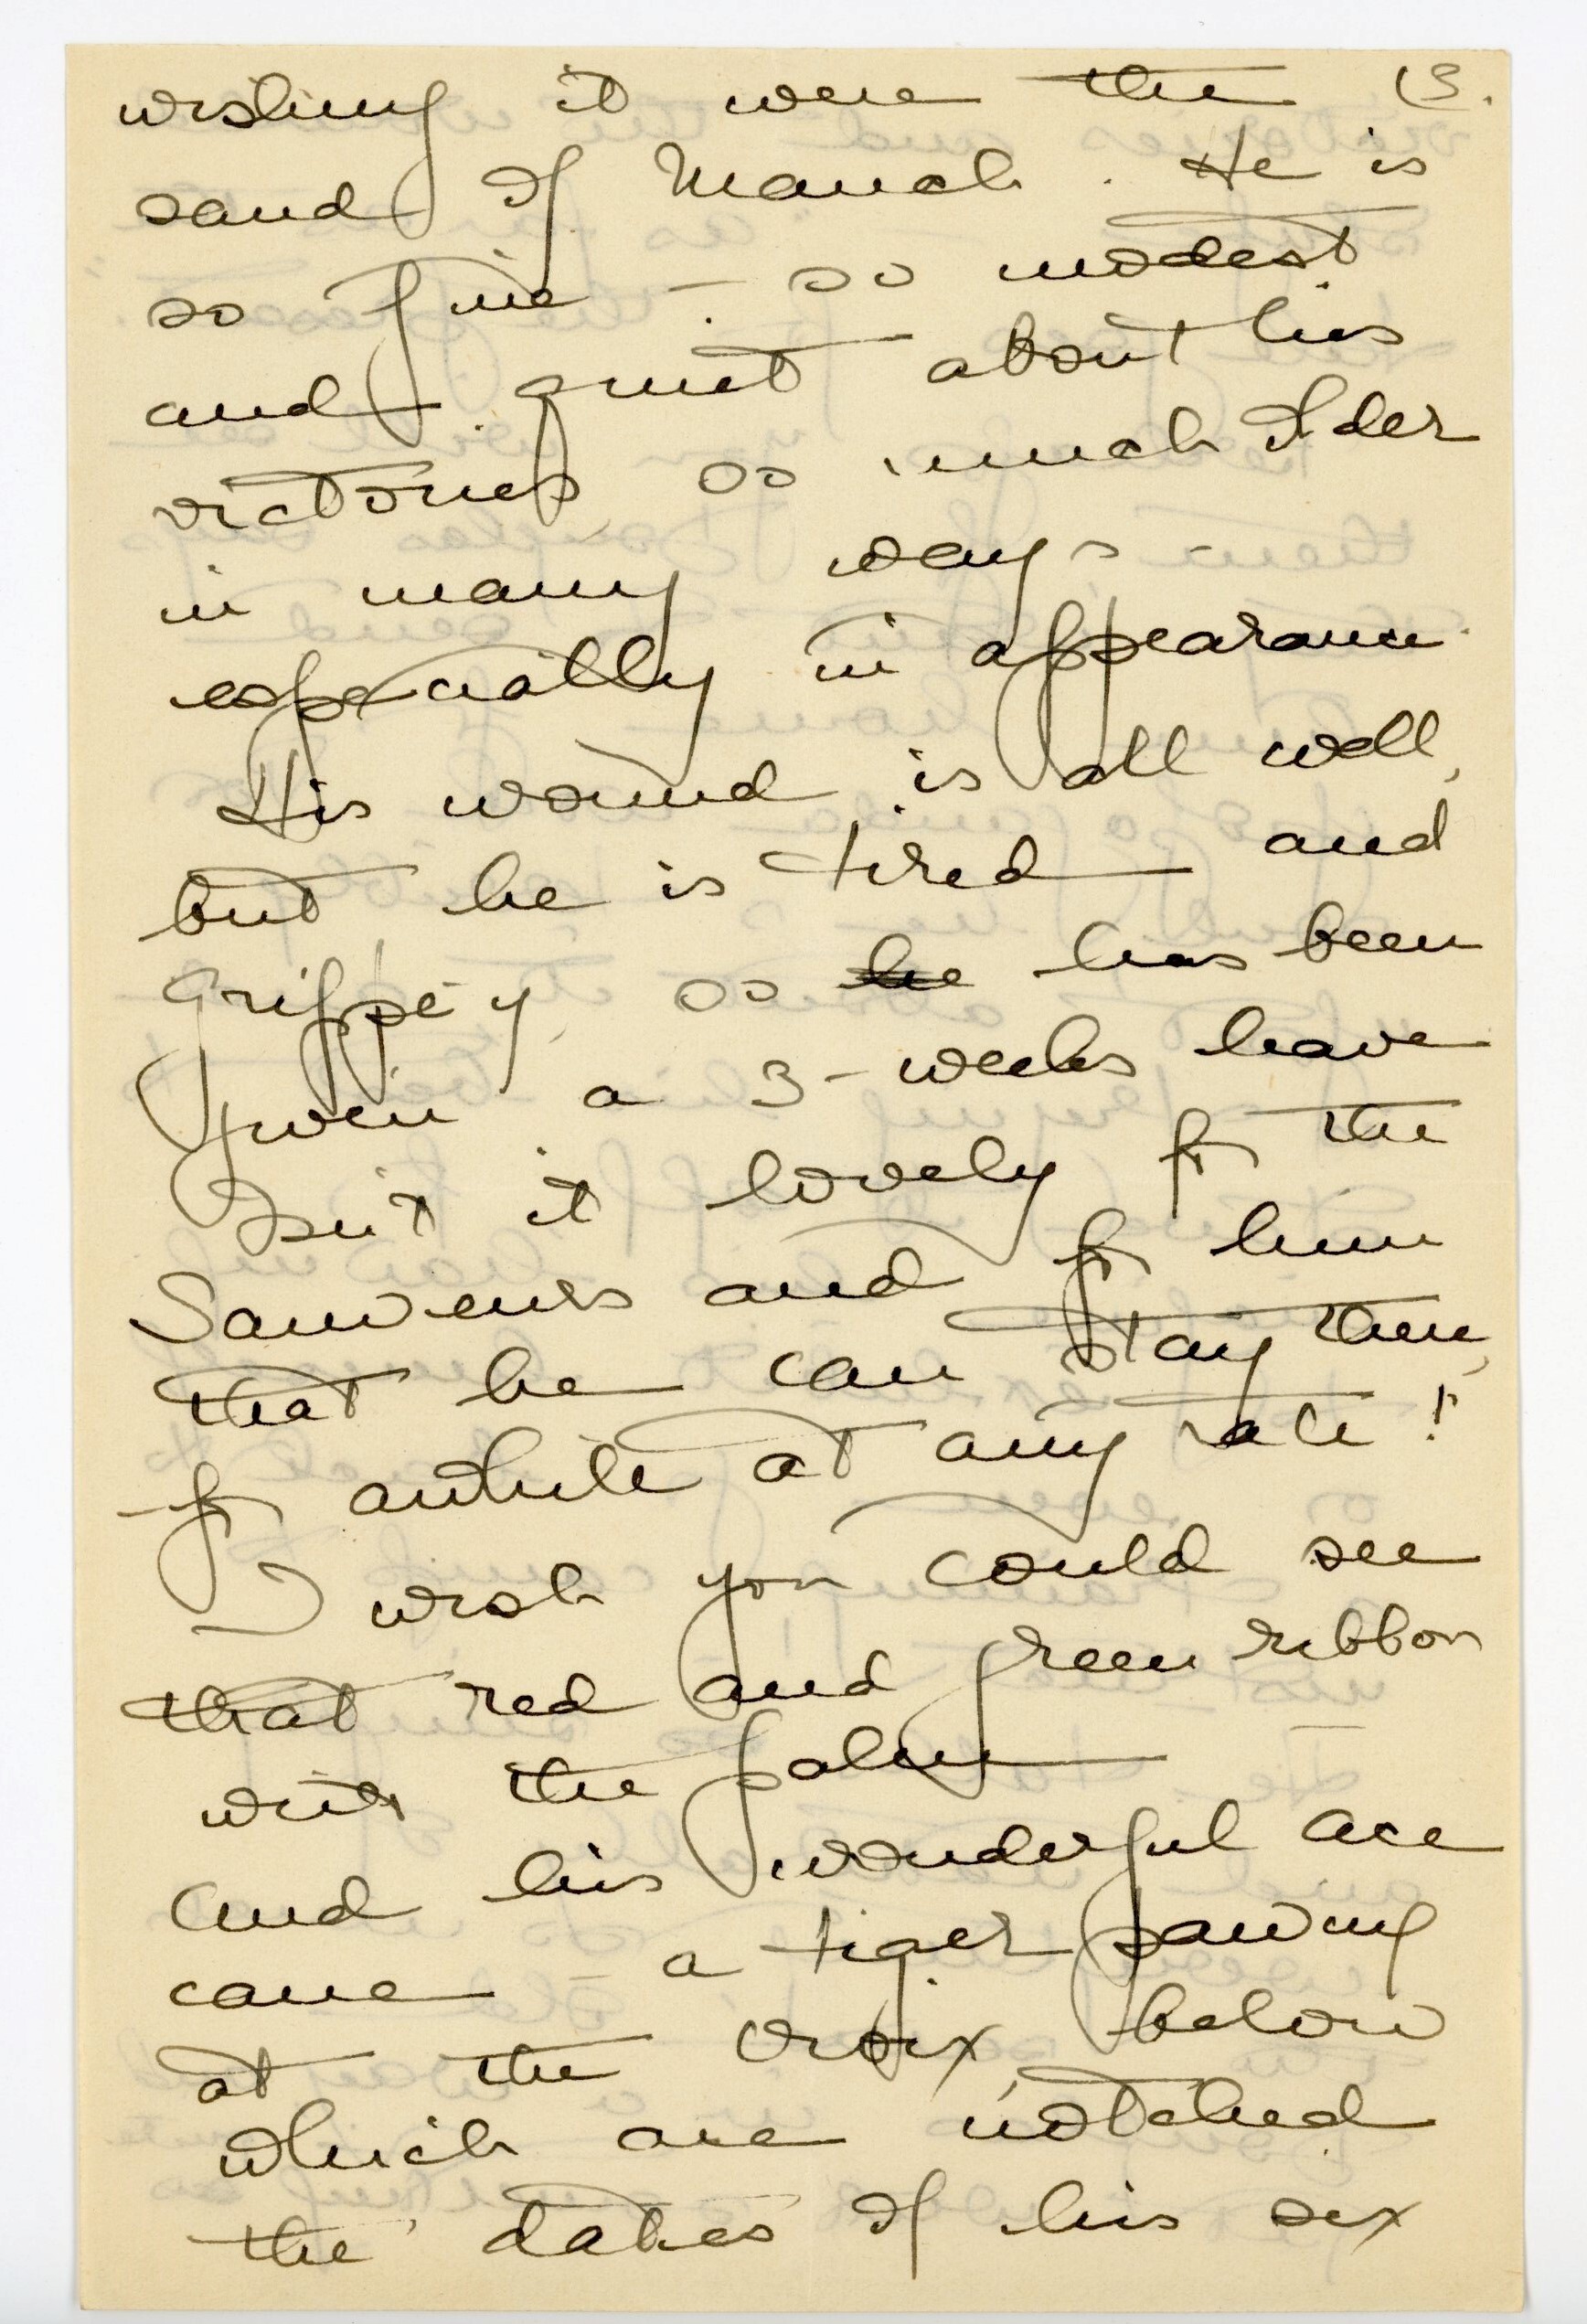 wishing it were the 13.
sand of March. He is
so fine - so modest
and quiet about his
victories, so much older
in many ways
especially in appearance.
His wound is all well,
but he is tired and
grippe'y, so he has been
given a 3-weeks leave
Isn't it lovely for the
and for him
that he can stay there,
for awhile at any rate!
I wish you could see
that red and green ribbon
with the palm
and his wonderful ace
cane a tiger pawing
at the croix, below
which are notched
the dates of his six